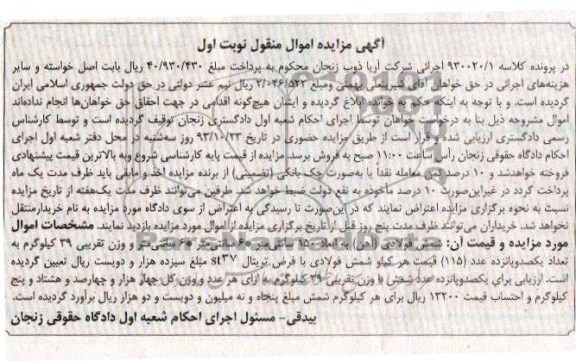 آگهی مزایده اموال منقول نوبت اول
در پرونده کلاسه ۹۳۰۰۲۰/۱ اجرائی شرکت آریا ذوب زنجان محکوم به پرداخت مبلغ ۴۰/۹۳۰/۴۳۰ ریال بابت اصل خواسته و سایر
هزینه‌های اجرائی در حق خواهان آقای شیرینعلی بهمنی ومبلغ ۲/۰۴۶/۵۴۲ ریال نیم عشر دولتی در حق دولت جمهوری اسلامی ایران
گردیده است. و با توجه به اینکه حکم به خوانده ابلاغ گردیده و ایشان هیچ‌گونه اقدامی در جهت احقاق حق خواهان‌ها انجام نداده‌اند
اموال مشروحه ذیل بنا به درخواست خواهان توسط اجرای احکام شعبه اول دادگستری زنجان توقیف گردیده است و توسط کارشناس
رسمی دادگستری ارزیابی شده قرار است از طریق مزایده حضوری در تاریخ ۹۳/۱۰/۲۳ روز سه‌شنبه در محل دفتر شعبه اول اجرای
احکام دادگاه حقوقی زنجان رأس ساعت ۱۱:۰۰ صبح به فروش برسد. مزایده از قیمت پایه کارشناسی شروع وبه بالاترین قیمت پیشنهادی
فروخته خواهدشد و ۱۰ درصد کل معامله نقداً یا به‌صورت چک بانکی (تضمینی) از برنده مزایده اخذ و مابقی باید ظرف مدت یک ماه
پرداخت گردد در غیراین‌صورت ۱۰ درصد مأخوذه به نفع دولت ضبط خواهد شد. طرفین می‌توانند ظرف مدت یک‌هفته از تاریخ مزایده
نسبت به نحوه برگزاری مزایده اعتراض نمایند که در این‌صورت تا رسیدگی به اعتراض از سوی دادگاه مورد مزایده به نام خریدارمنتقل
نخواهد شد. خریداران می‌توانند ظرف مدت پنج روز قبل از تاریخ برگزاری مزایده از اموال مورد مزایده بازدید نمایند. مشخصات اموال
مورد مزایده و قیمت آن: شمش فولادی (آهن) به ابعاد ۱۵۰ سانتی‌متر و وزن تقریبی ۳۹ کیلوگرم به
تعداد یکصدوپانزده عدد (۱۱۵) قیمت هر کیلو شمش فولادی با فرض تریتال st۳۷ مبلغ سیزده هزار و دویست ریال تعیین گردیده
است. ارزیابی برای یکصدوپانزده عدد شمش با وزن تقریبی ۳۹ کیلوگرم به ازای هر عدد و وزن کل چهار هزار و چهارصد و هشتاد و پنج
کیلوگرم و احتساب قیمت ۱۳۲۰۰ ریال برای هر کیلوگرم شمش مبلغ پنجاه و نه میلیون و دویست و دو هزار ریال برآورد گردیده است.
بیدقی- مسئول اجرای احکام شعبه اول دادگاه حقوقی زنجان